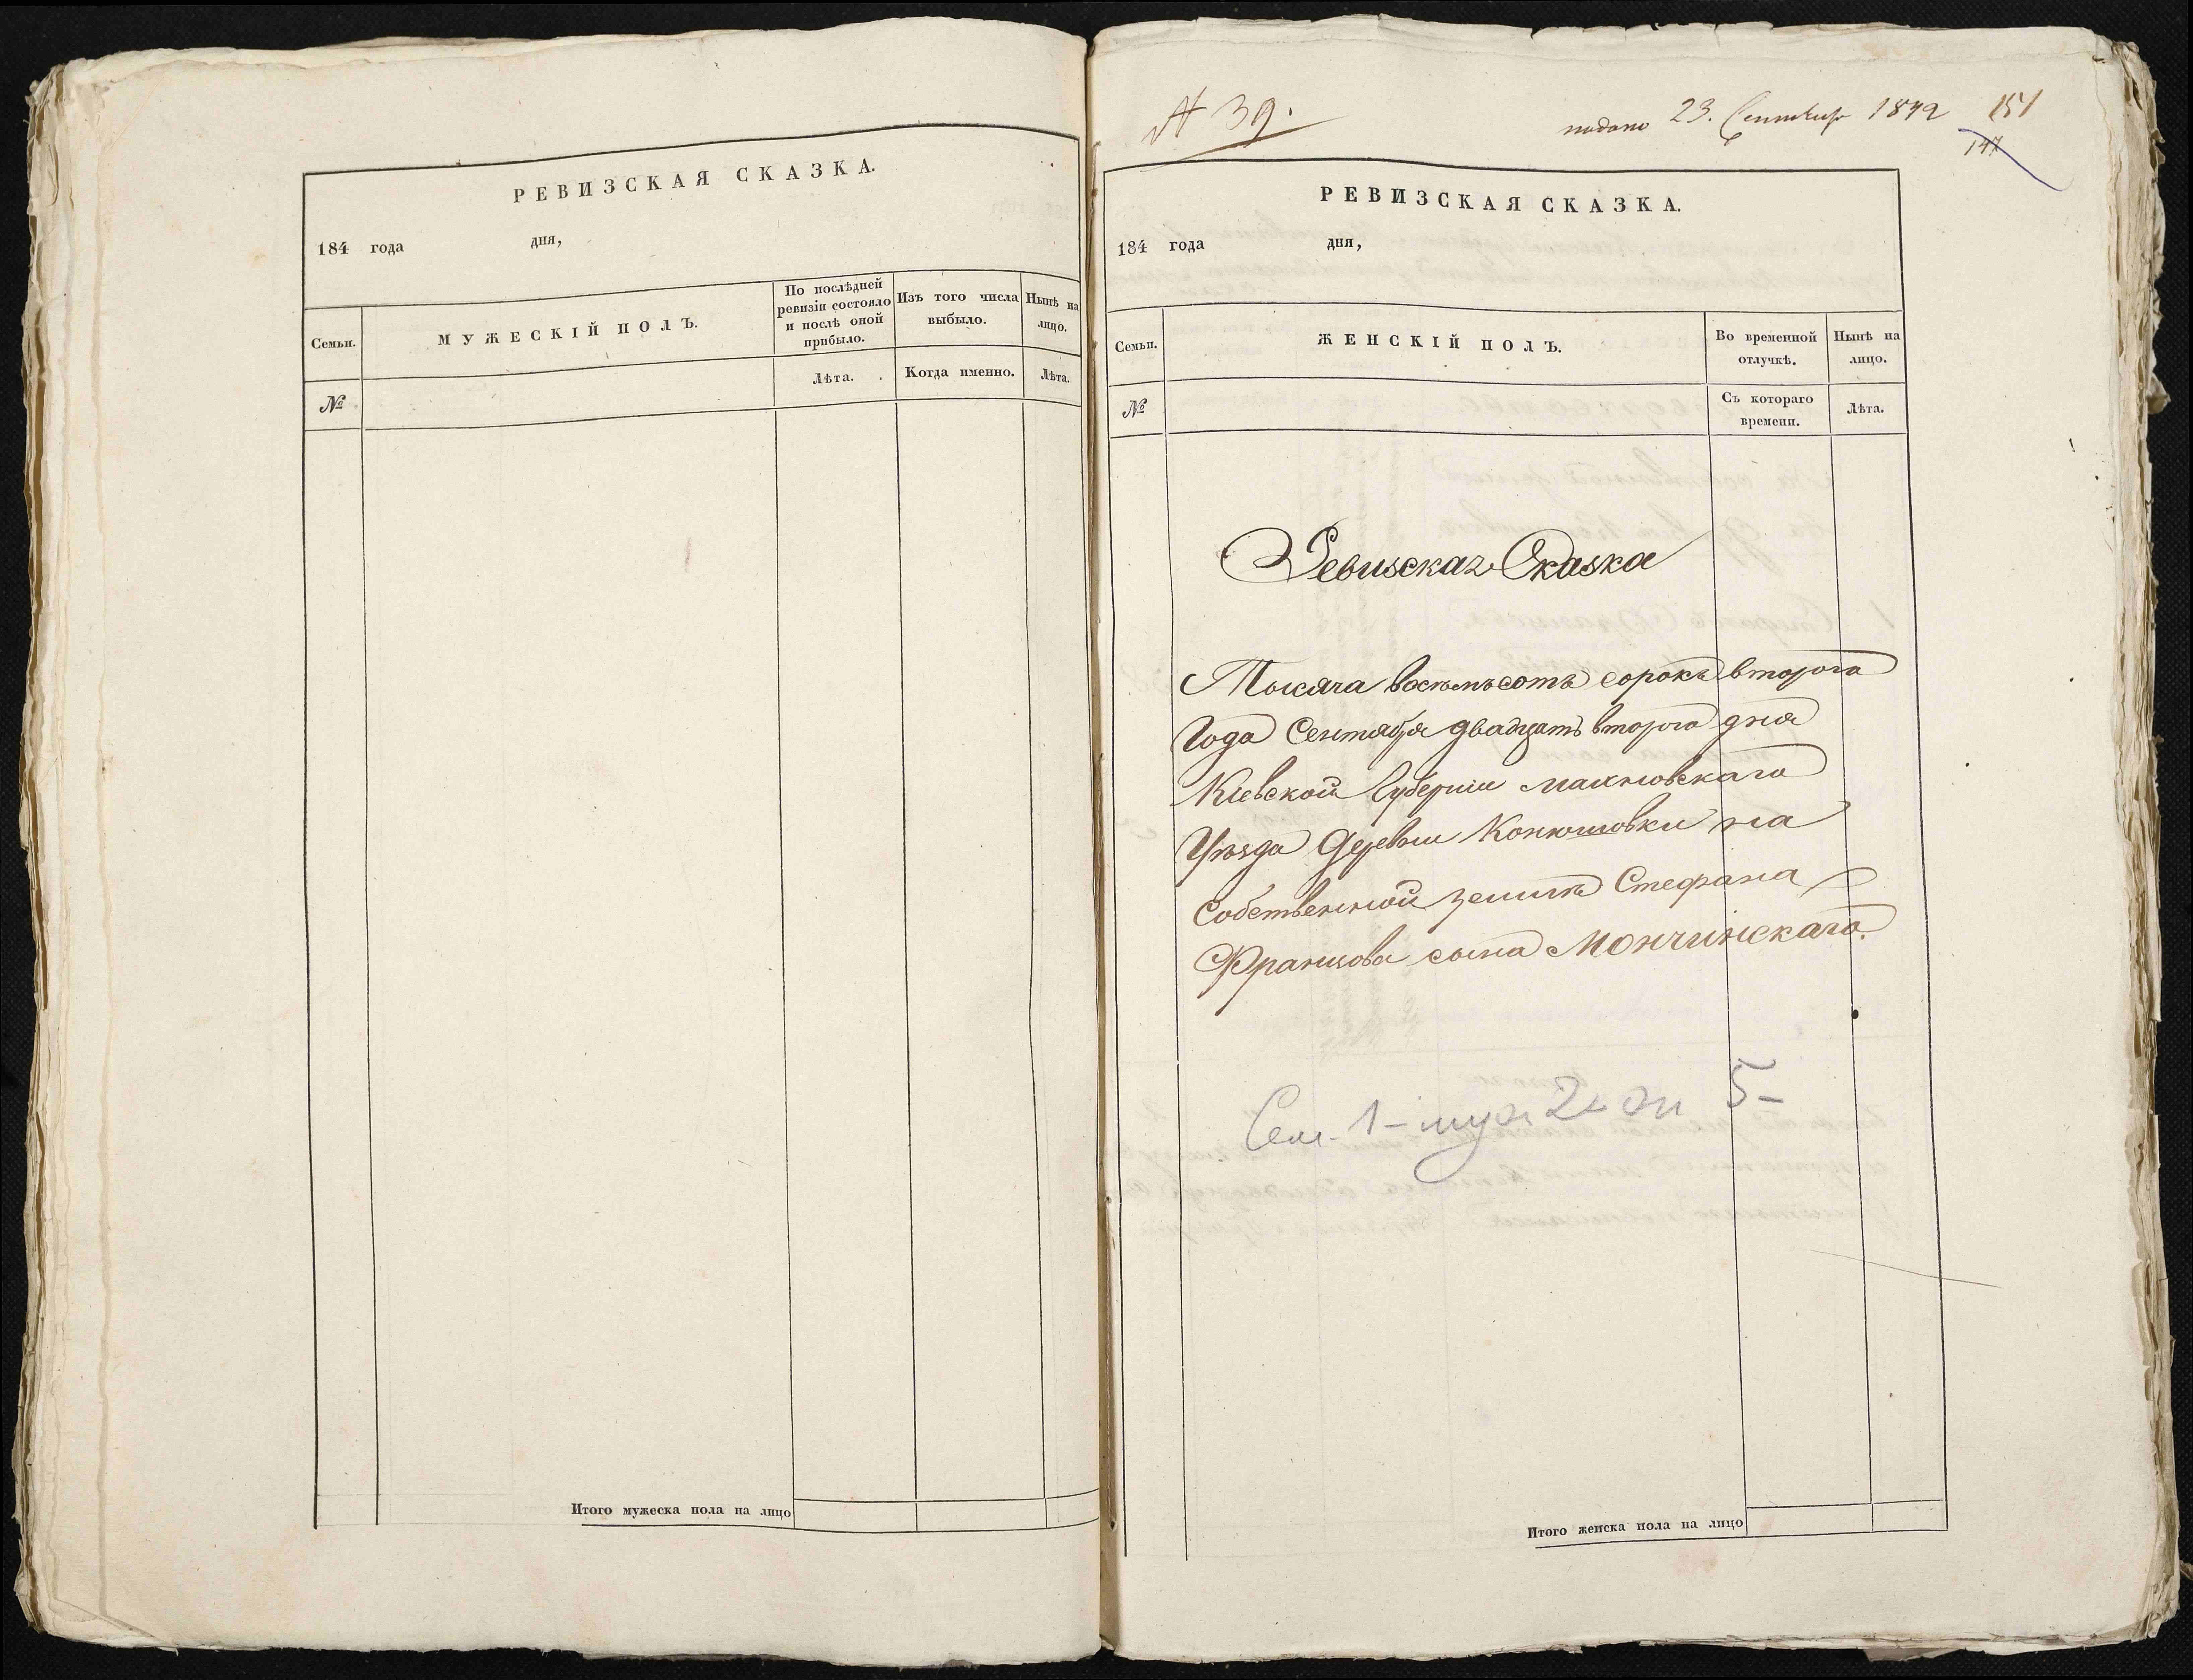 РЕВИЗСКАЯ СКАЗКА.
184 года дня,
Семьи.
МУЖЕСКІЙ ПОЛЪ.
По послѣдней
ревизіи состояло
и послѣ оной
прибыло.
Изъ того числа
выбыло.
Нынѣ на
лицо.
№
Лѣта.
Когда именно.
Лѣта.
Итого мужеска пола на лицо
№ 39.
подано 23. Сентября 1842
151
147
РЕВИЗСКАЯ СКАЗКА.
184 года дня,
Семьи.
ЖЕНСКІЙ ПОЛЪ.
Во временной
отлучкѣ.
Нынѣ на
лицо.
№
Съ котораго
времени.
Лѣта.
Ревизская Сказка
Тысяча восѣмъсотъ сорокъ второго
Года Сентября двадцать второго дня
Кіевской Губерніи Махновскаго
Уѣзда Деревни Конюшовки на
Собственной землѣ Стефана
Францова сына Мончинскаго.
Сем. 1 – муж 2 – жен 5 –
Итого женска пола на лицо